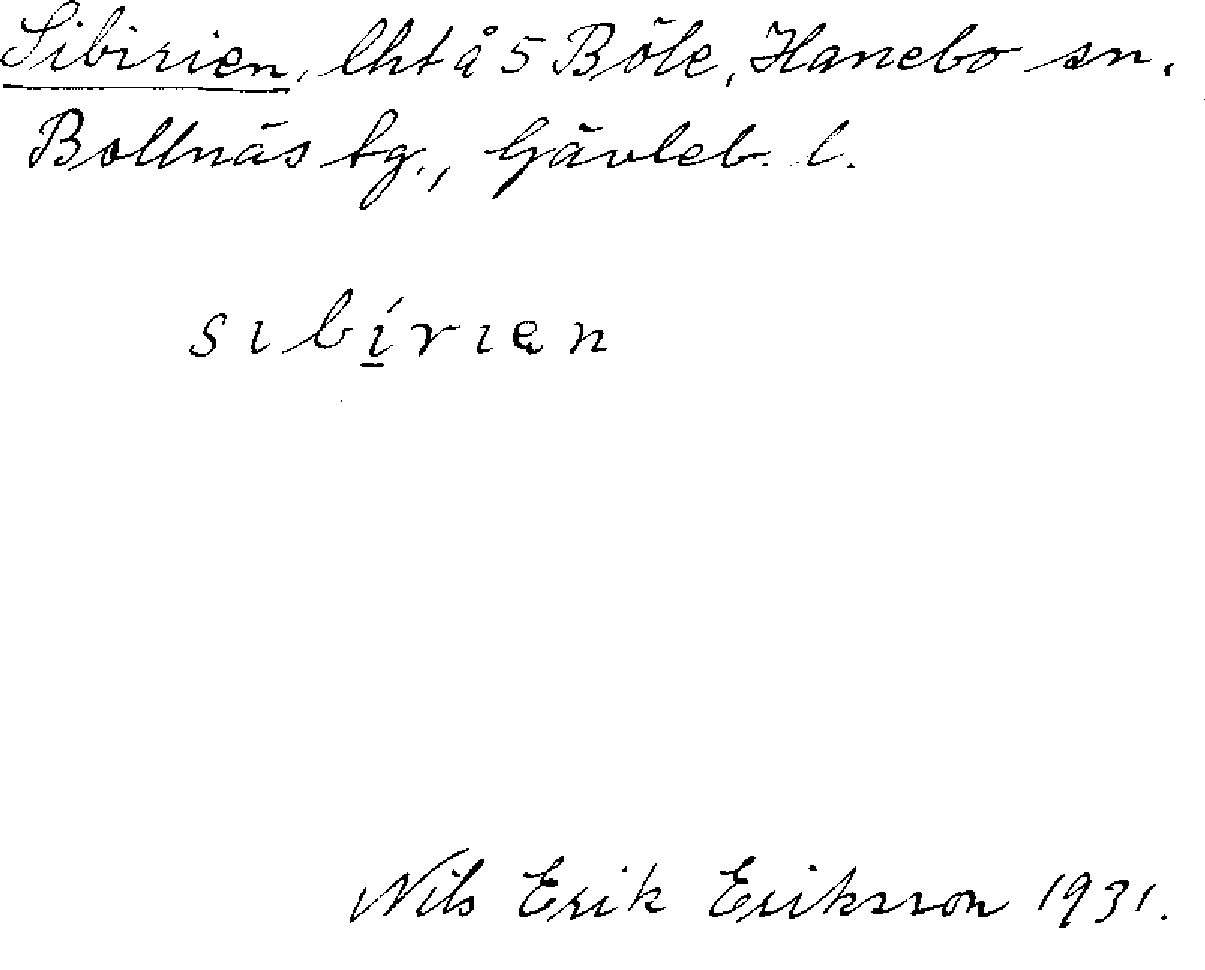 Sibirien, lht å 5 Böle, Hanebo sn.
Bollnäs tg., Gävleb. l.
sıbı́rıen
Nils Erik Eriksson 1931.